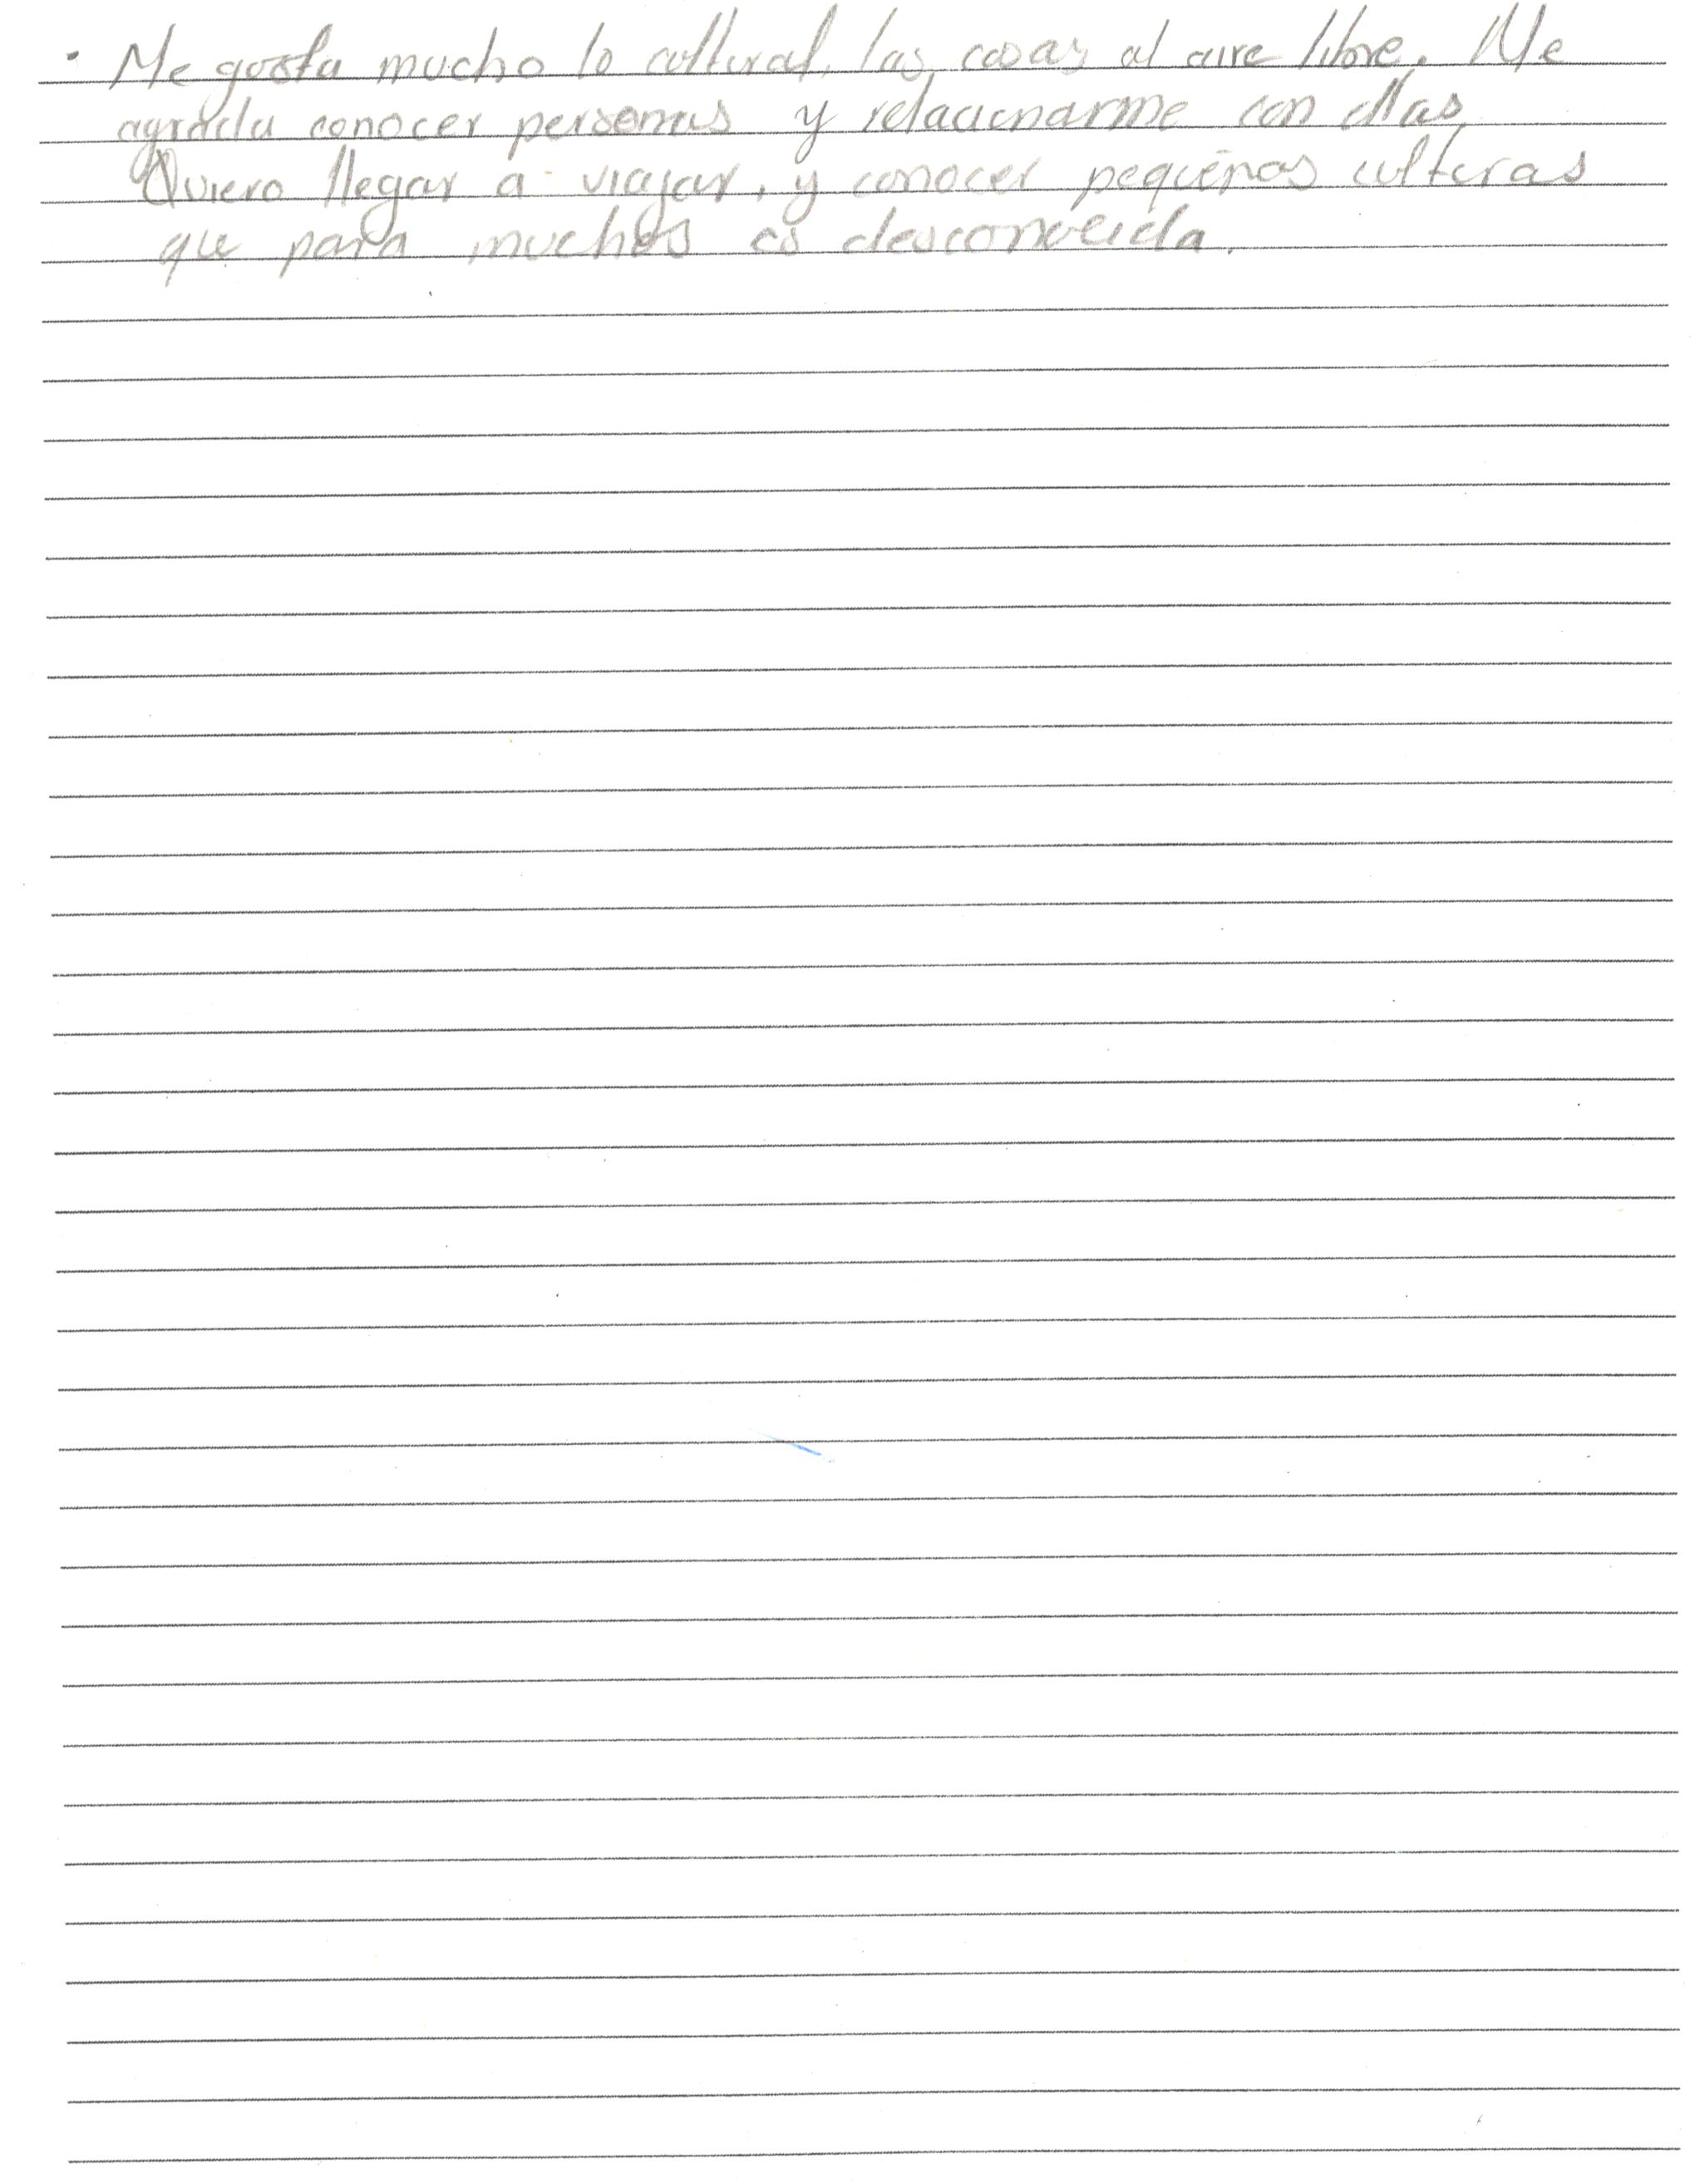 · Me gusta mucho lo cultural, las cosas al aire libre. Me
agrada conocer personas y relacionarme con ellas
Quiero llegar a viajar, y conocer pequeñas culturas
que para muchos es desconocida.